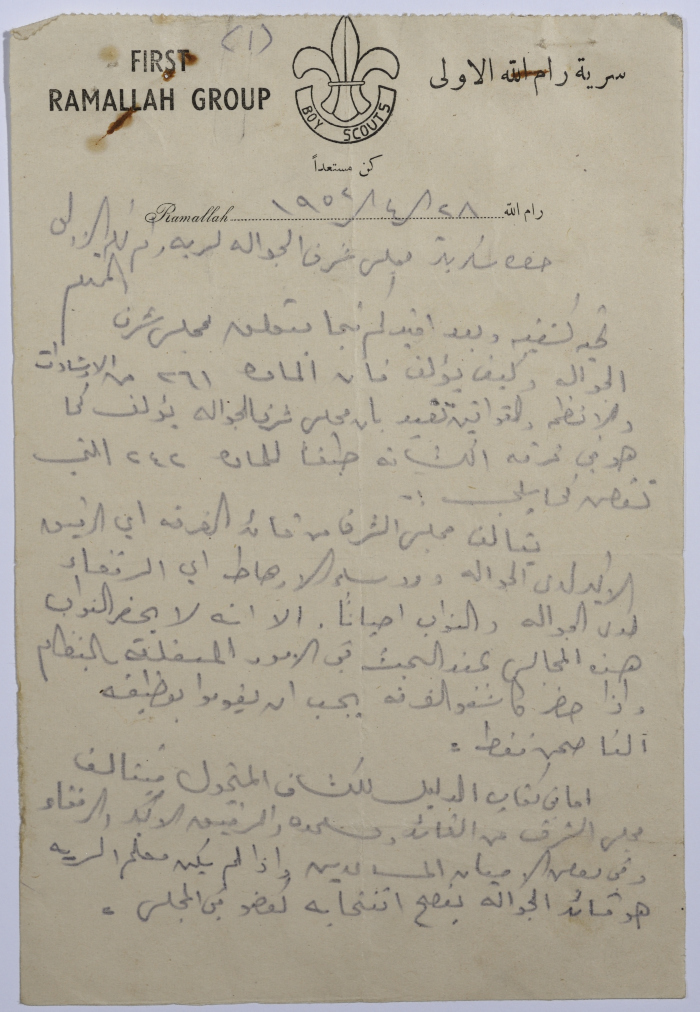 (١)
FIRST
RAMALLAH GROUP
BOY SCOUTS
سرية رام الله الاولى
كن مستعداً
Ramallah رام الله ٢٨/٤/١٩٥٢
حضرة مجلس شرف الجواله لسرية رام الله الاولى
تحيه كشفيه وبعد افيدكم فيما يتعلق بمجلس شرف
الجواله وكيف يؤلف فان الماده ٢٦١ من الارشادات
والانظمه والقوانين تفيد بان مجلس شرف الجواله يؤلف كما
هو في فرقه الكشافه طبقاً للماده ٢٤٢ التي
تنص كما يلي :-
يتألف مجلس الشرف من قائد الفرقه اي الرئيس
الاكبر لدى الجواله ورؤساء الارهاط اي الرفقاء
لدى الجواله والنواب احياناً. الا انه لا يحضر النواب
هذه المجالس عند البحث في الامور المتعلقه بالنظام
واذا حضر كاشفو الفرقه يجب ان يقوموا بوظيفه
الناصحين فقط .
اما في كتاب الدليل للكشاف المتجول فيتألف
مجلس الشرف من القائد ومساعده والرفيق الاكبر والرفقاء
وفي بعض الاحيان المساعدين واذا لم يكن معلم السريه
هو قائد الجواله ينصح انتخابه كعضو في المجلس .